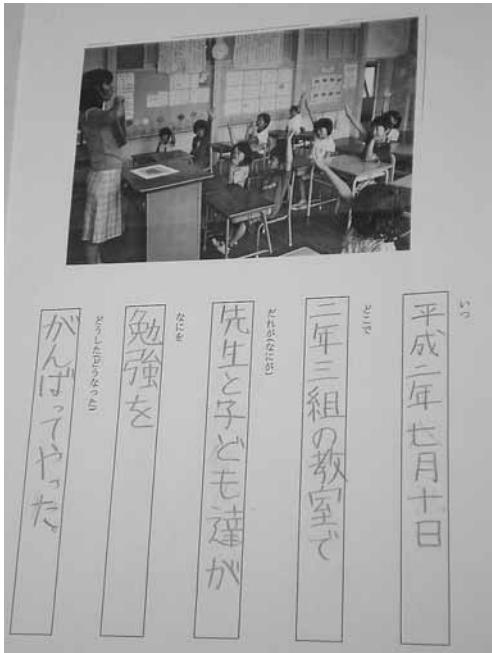 いつ
平成二年七月十日
どこで
二年三組の教室で
だれが(なにが)
先生と子ども達が
なにを
勉強を
どうした(どうなった)
がんばってやった。